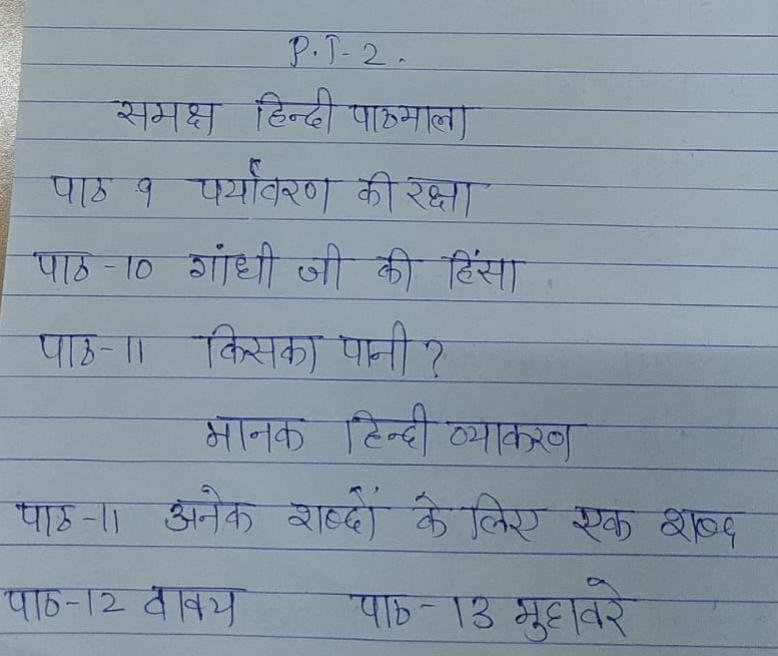 P.T-2.
समक्ष हिन्दी पाठमाला
पाठ 9 पर्यावरण की रक्षा
पाठ-10 गांधी जी की हिंसा
पाठ-11 किसका पानी?
मानक हिन्दी व्याकरण
पाठ-11 अनेक शब्दों के लिए एक शब्द
पाठ-12 वाक्य पाठ-13 मुहावरे